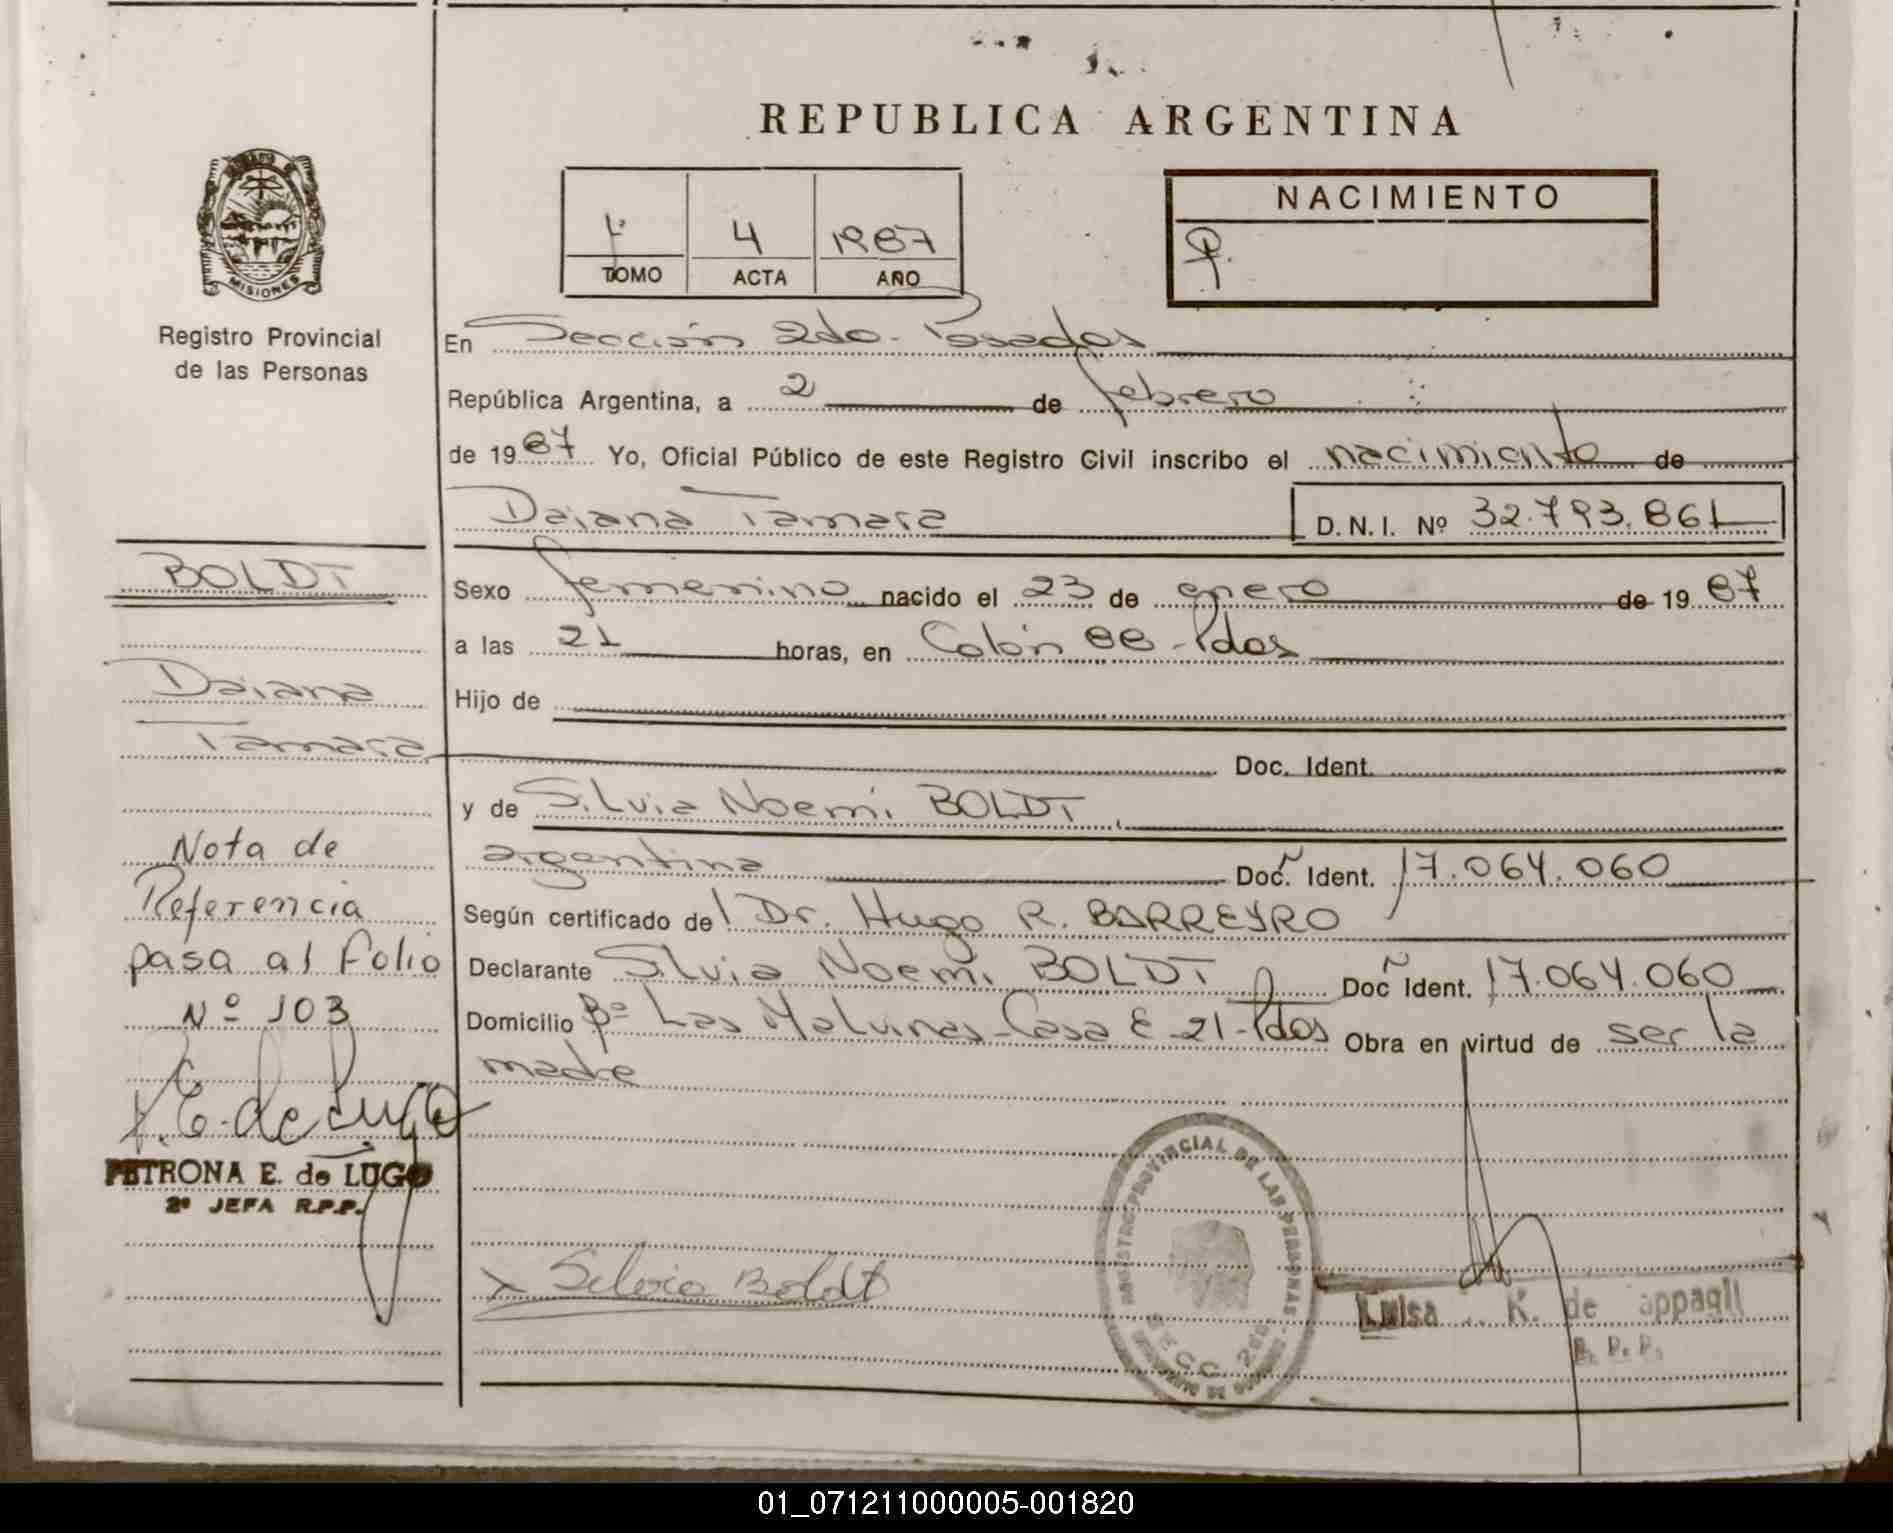 REPUBLICA ARGENTINA
MISIONES
Registro Provincial
de las Personas
1º 4 1987
TOMO ACTA AÑO
NACIMIENTO
En Sección 2do. Posadas
República Argentina, a 2 de febrero
de 1987 Yo, Oficial Público de este Registro Civil inscribo el nacimiento de
Daiana Tamara D.N.I. Nº 32.793.861
BOLDT
Sexo femenino nacido el 23 de enero de 1987
a las 21 horas, en Colón 88 - Pdas
Daiana
Tamara
Hijo de
Doc. Ident.
y de Silvia Noemi BOLDT,
argentina Doc. Ident. 17.064.060
Según certificado del Dr. Hugo R. BARREYRO
Declarante Silvia Noemi BOLDT Doc Ident. 17.064.060
Domicilio Bº Las Malvinas - Casa E-21-Pdas Obra en virtud de ser la
madre
Nota de
Referencia
pasa al Folio
Nº 103
P.E. de Lugo
PETRONA E. de LUGO
2º JEFA R.P.P.
x Silvia Boldt
REGISTRO PROVINCIAL DE LAS PERSONAS
SECC. 2da
Luisa K. de
R. P. P.
01_071211000005-001820